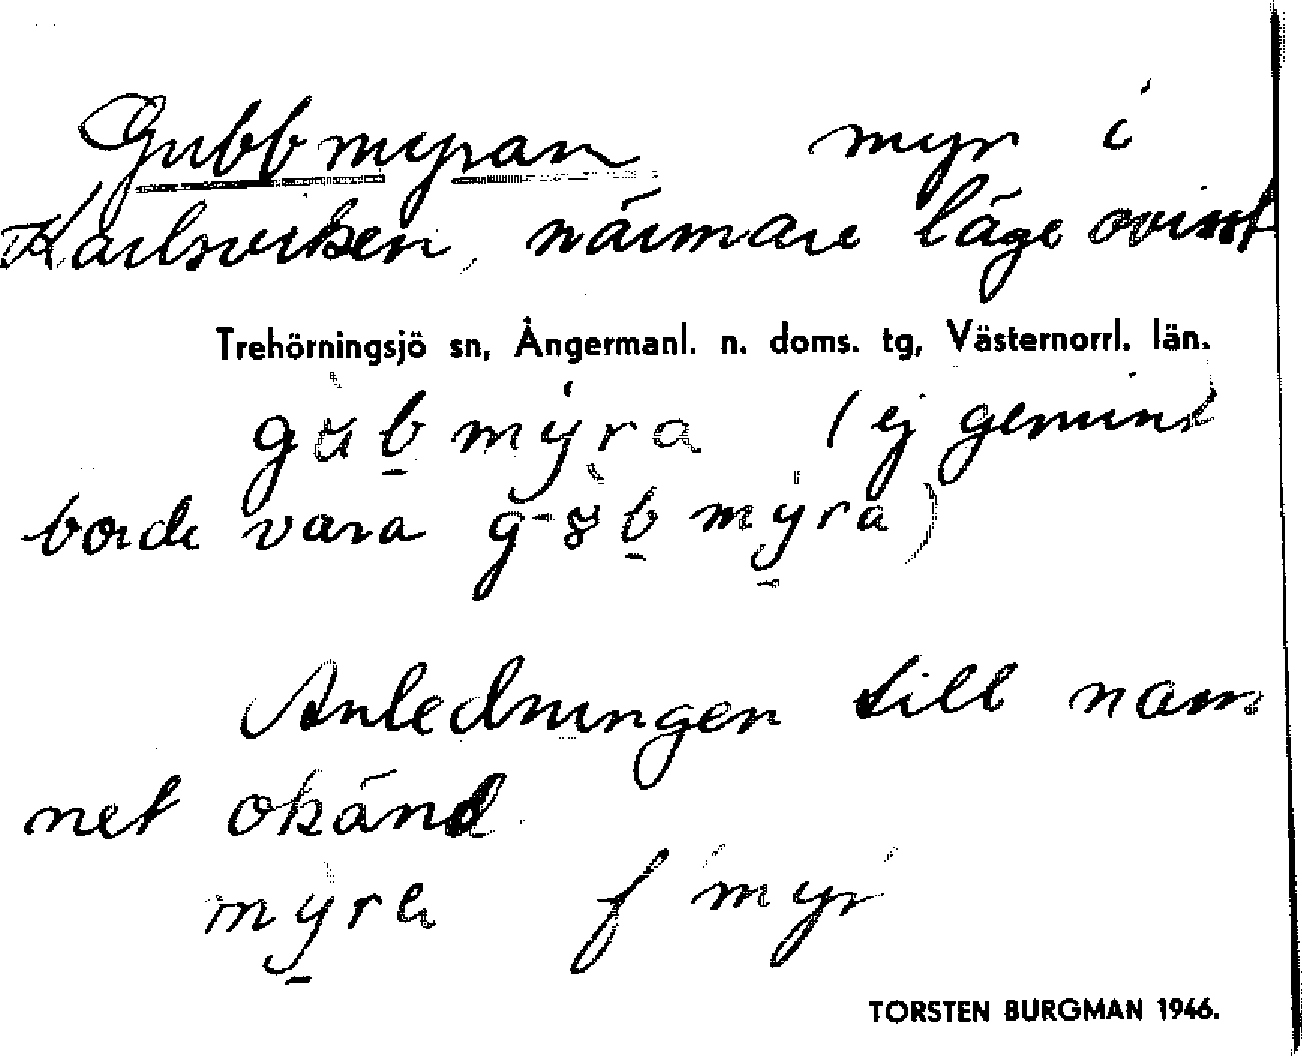 Gubbmyran myr i
Karlsviken, närmare läge ovisst
Trehörningsjö sn, Ångermanl. n. doms. tg, Västernorrl. län.
gubmyra (ej genuint
borde vara g-bmyra)
Anledningen till nam
net okänd.
myra f 'myr'
TORSTEN BURGMAN 1946.